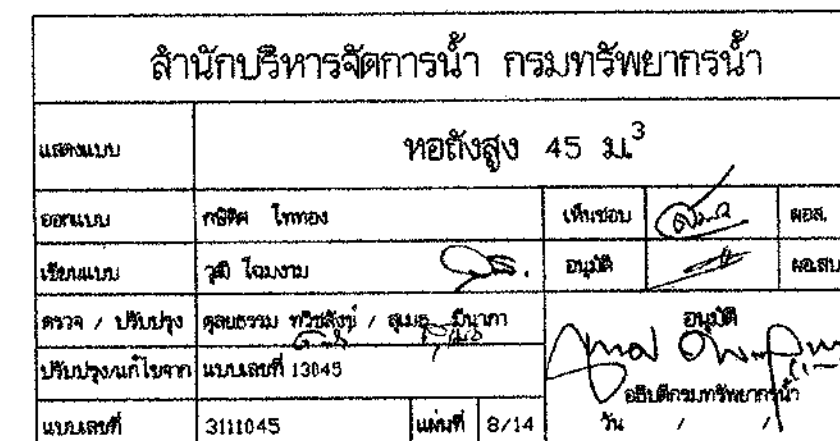 สำนักบริหารจัดการน้ำ กรมทรัพยากรน้ำ
แสดงแบบ หอถังสูง 45 ม.³
ออกแบบ กษิดิศ โททอง เห็นชอบ ผอส.
เขียนแบบ วุฒิ โฉมงาม อนุมัติ ผอ.สบ
ตรวจ / ปรับปรุง ตุลยธรรม ทวิชสังข์ / สุเมธ มีนาภา
อนุมัติ
ปรับปรุง/แก้ไขจาก แบบเลขที่ 13045
อธิบดีกรมทรัพยากรน้ำ
แบบเลขที่ 3111045 แผ่นที่ 8/14 วัน / /